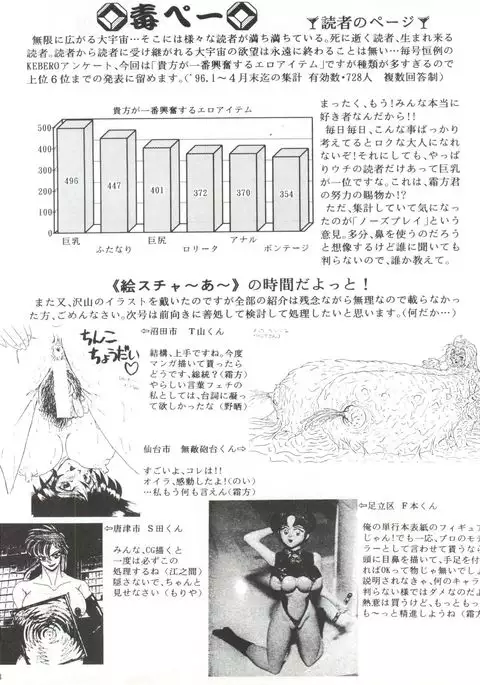 毒ペー
読者のページ
無限に広がる大宇宙…そこには様々な読者が満ち満ちている。死に逝く読者、生まれ来る
読者。読者から読者に受け継がれる大宇宙の欲望は永遠に終わることは無い…毎号恒例の
KEBEROアンケート、今回は「貴方が一番興奮するエロアイテム」ですが種類が多すぎるので
上位6位までの発表に留めます。('96.1～4月末迄の集計 有効数・728人 複数回答制)
貴方が一番興奮するエロアイテム
500
400
300
200
100
0
496
447
401
372
370
354
巨乳
ふたなり
巨尻
ロリータ
アナル
ボンテージ
まったく、もう!みんな本当に
好き者なんだから!!
毎日毎日、こんな事ばっかり
考えてるとロクな大人になれ
ないぞ!それにしても、やっぱ
りウチの読者だけあって巨乳
が一位ですな。これは、霜方君
の努力の賜物か!?
ただ、集計していて気になっ
たのが「ノーズプレイ」という
意見。多分、鼻を使うのだろう
と想像するけど誰に聞いても
判らないので、誰か教えて。
《絵スチャ～あ～》の時間だよっと!
また又、沢山のイラストを戴いたのですが全部の紹介は残念ながら無理なので載らなかっ
た方、ごめんなさい。次号は前向きに善処して検討して処理したいと思います。(何だか…)
ちんこ
ちょうだい♡
⇦沼田市 T山くん
結構、上手ですね。今度
マンガ描いて貰ったら
どうです、総統?(霜方)
やらしい言葉フェチの
私としては、台詞に凝っ
て欲しかったな(野晒)
仙台市 無敵砲台くん⇨
すごいよ、コレは!!
オイラ、感動したよ!(のい)
…私もう何も言えん(霜方)
⇦唐津市 S田くん
みんな、CG描くと
一度は必ずこの
処理するね(江之間)
隠さないで、ちゃんと
見せなさい(もりや)
⇦足立区 F本くん
俺の単行本表紙のフィギュア
じゃん!でも一応、プロのモデ
ラーとして言わせて貰うなら
頭に目鼻を描いて、手足を付
ればOKって物じゃ無いでしょ
説明されなきゃ、何のキャラ
判らない様ではダメなのだよ
熱意は買うけど、もっともっ
も～っと精進しようね(霜方